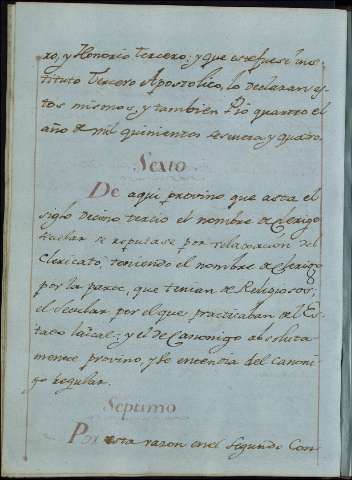 ro, y Honorio Tercero; y que este fuese ins-
tituto Tercero Apostolico, lo declaran es-
tos mismos, y tambien Pio quarto el
año de mil quinientos sesenta y quatro.
Sexto
De aqui provino que asta el
siglo decimo tercio el nombre de Clerigo
secular se reputase por relaxacion del
Clericato, teniendo el nombre de Clerigo
por la parte, que tenian de Religiosos;
el secular, por el que practicaban del Es-
tado laical; y el de Canonigo absoluta
mente provino, y se entendia del Canoni-
go regular.
Septimo
Por esta razon en el segundo Con-